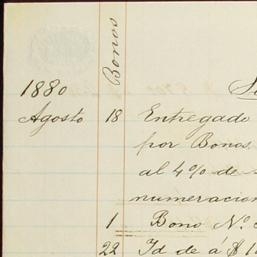 Bonos
1880
Agosto 18 Entregado
por Bonos
al 4% de
numeracion
1 Bono Nº
22 Id de á $ 1